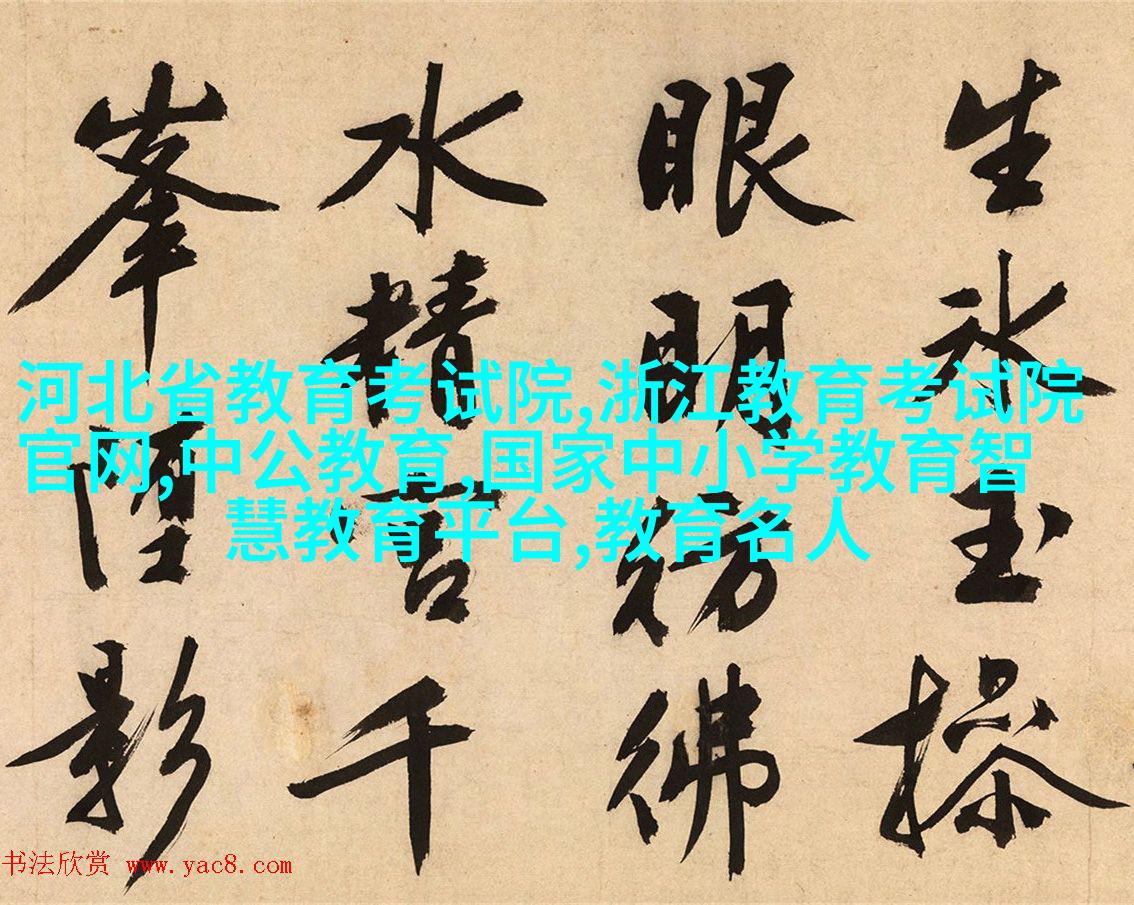 生氷玉操
眼明彷彿
水精宮千
峯影
河北省教育考试院,浙江教育考试院
官网,中公教育,国家中小学教育智
慧教育平台,教育名人
书法欣赏 www.yac8.com